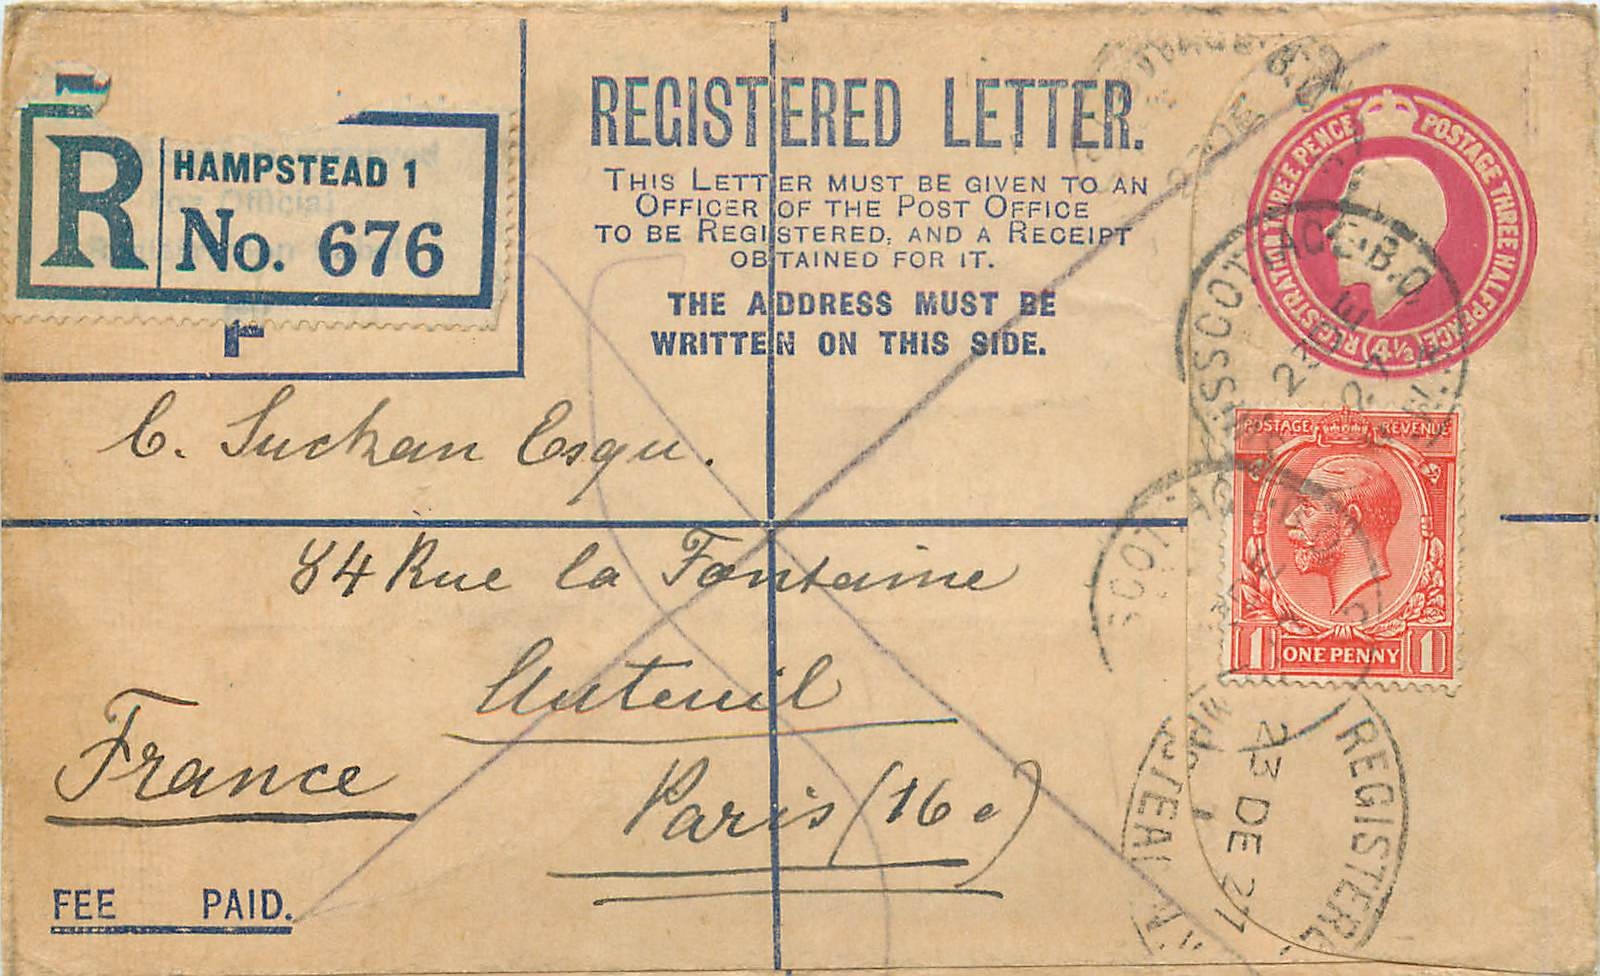 R
HAMPSTEAD 1
No. 676
REGISTERED LETTER.
THIS LETTER MUST BE GIVEN TO AN
OFFICER OF THE POST OFFICE
TO BE REGISTERED, AND A RECEIPT
OBTAINED FOR IT.
THE ADDRESS MUST BE
WRITTEN ON THIS SIDE.
REGISTRATION THREE PENCE POSTAGE THREE HALFPENCE (4½)
POSTAGE REVENUE
1 ONE PENNY 1
C. Suchan Esqu.
84 Rue la Fontaine
Auteuil
Paris (16e)
France
FEE PAID.
23 DE 21
REGISTERE